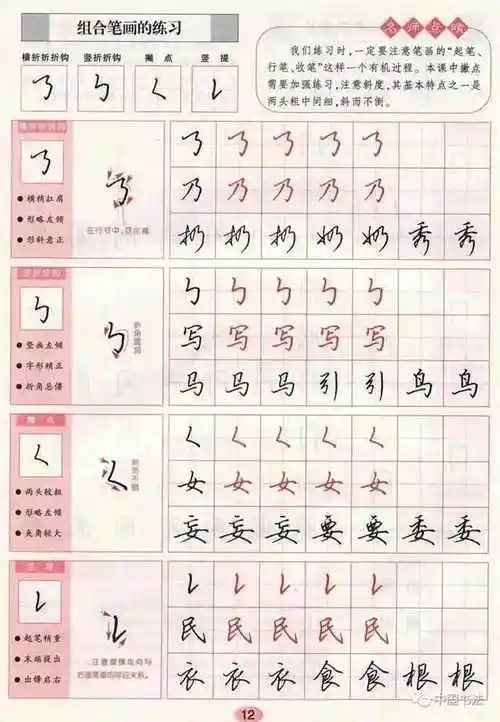 组合笔画的练习
横折折折钩 竖折折钩 撇点 竖提
㇡ ㇉ ㇛ ㇙
名师点啄
我们练习时，一定要注意笔画的“起笔、
行笔、收笔”这样一个有机过程。本课中撇点
需要加强练习，注意斜度，其基本特点之一是
两头粗中间细，斜而不倒。
横折折折钩
㇡
● 横稍扛肩
● 形略左倾
● 形斜意正
㇡ ㇡ ㇡ ㇡ ㇡
乃 乃 乃 乃 乃
扔 扔 扔 奶 奶 秀 秀
竖折折钩
㇉
● 竖画左倾
● 字形稍正
● 折角忌僵
㇉ ㇉ ㇉ ㇉ ㇉
写 写 写 写 写
马 马 马 引 引 鸟 鸟
撇点
㇛
● 两头较粗
● 形略左倾
● 夹角较大
斜而不倒
㇛ ㇛ ㇛ ㇛ ㇛
女 女 女 女 女
妄 妄 妄 要 要 委 委
竖提
㇙
● 起笔稍重
● 末端提出
● 出锋启右
注意提锋走向与
后面笔画的呼应关系。
㇙ ㇙ ㇙ ㇙ ㇙
民 民 民 民 民
衣 衣 衣 食 食 根 根
12
中国书法